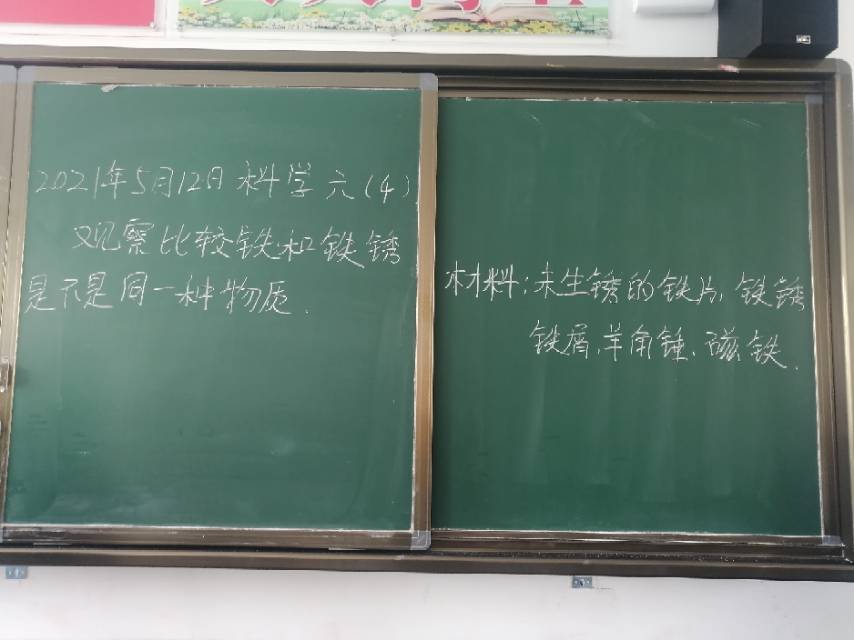 2021年5月12日 科学 六(4)
观察比较铁和铁锈
是不是同一种物质.
材料:未生锈的铁片,铁锈
铁屑,羊角锤、磁铁.